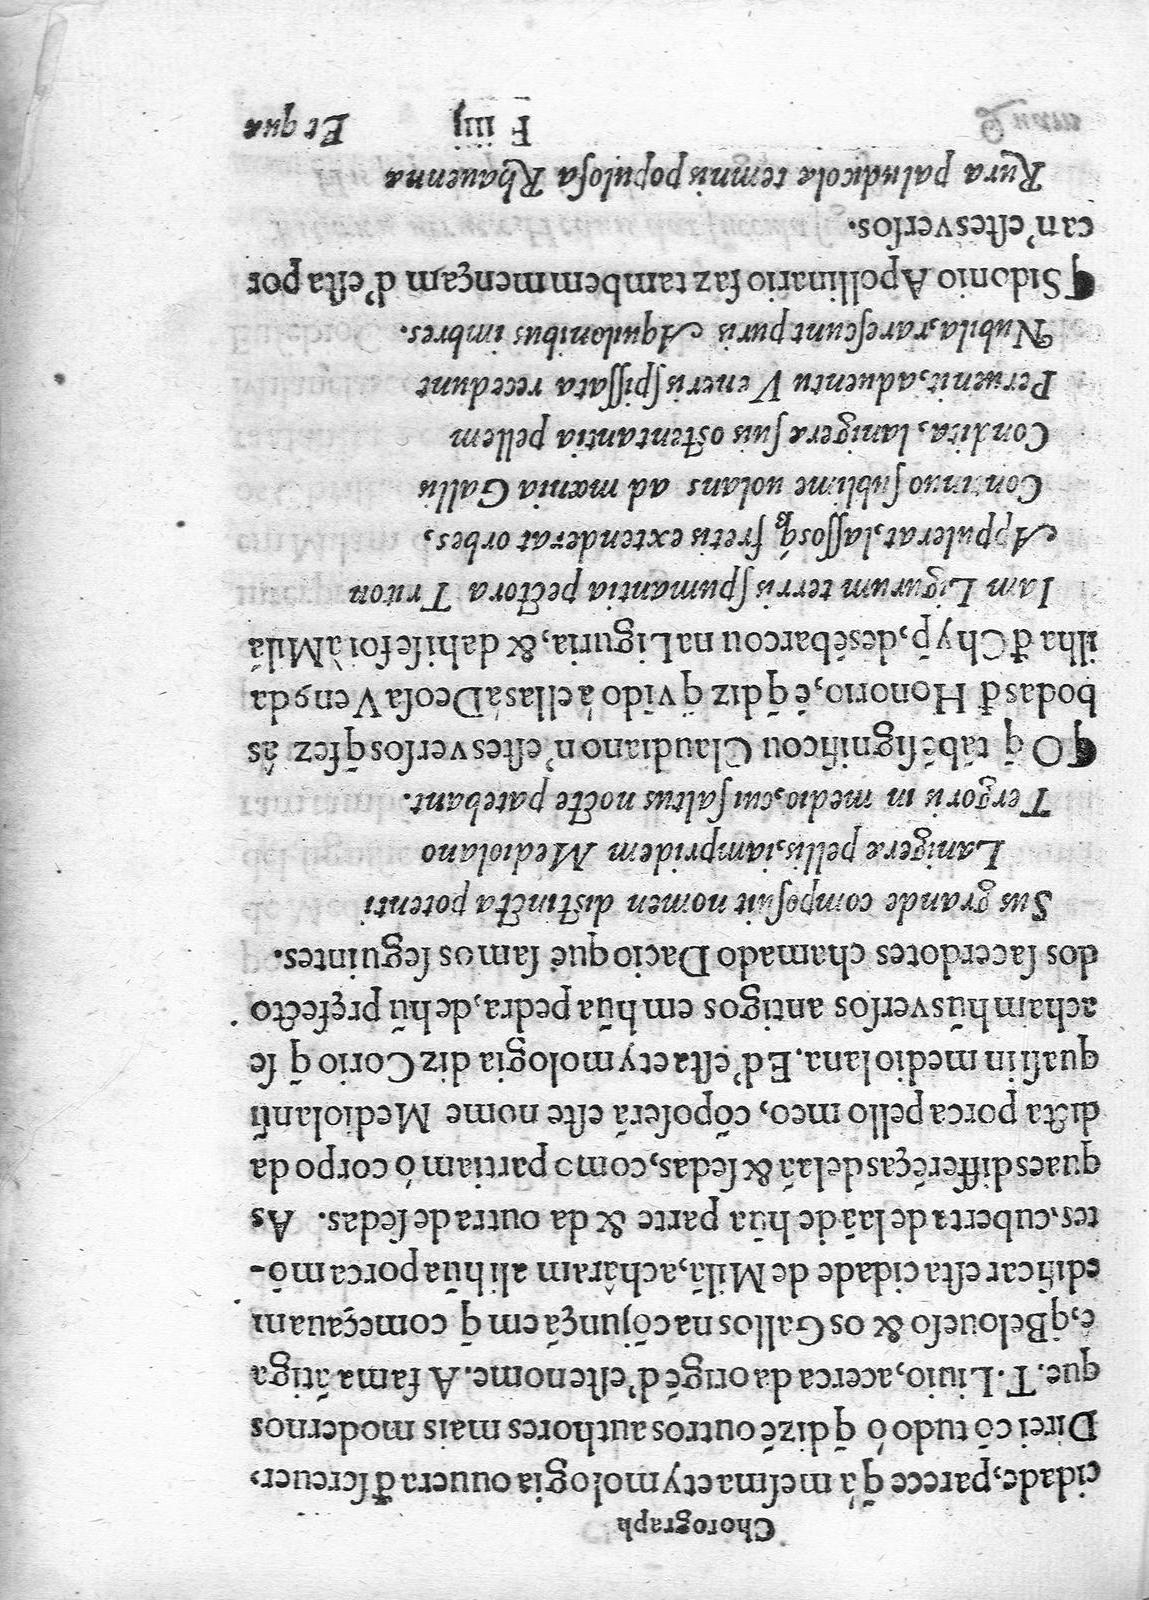 Chorograph
cidade, parece q̃ á mesma etymologia ouuera đ screuer,
Direi cõ tudo ó q̃ dizẽ outros authores mais modernos
que. T. Liuio, acerca da origẽ d'este nome. A fama ãtiga
é, q̃ Belouefo & os Gallos na cõjunçã em q̃ começauam
edificar esta cidade de Milã, achâram ali hũa porca mõ-
tes, cuberta de lãa de hũa parte & da outra de sedas. As
quaes differẽças de lãa & sedas, como partiam ó corpo da
dicta porca pello meo, cõposerã este nome Mediolanũ
quasi in medio lana. E d'esta etymologia diz Corio q̃ se
acham hũs versos antigos em hũa pedra, de hũ pręfecto
dos sacerdotes chamado Dacio que sam os seguintes.
Sus grande composuit nomen distincta potenti
Lanigeræ pellis, iampridem Mediolano
Tergoris in medio, cui saltus nocte patebant.
¶ O q̃ tãbẽ significou Claudiano n'estes versos q̃ fez âs
bodas đ Honorio, é q̃ diz q̃ vĩdo á ellas á Deosa Venꝰ da
ilha đ Chyp̃, desẽbarcou na Liguria, & dahi se foi à Milã
Iam Ligurum terris spumantia pectora Triton
Appulerat, lassosq́ꝫ fretis extenderat orbes,
Continuo sublime uolans ad mœnia Gallis
Condita, lanigeræ suis ostentantia pellem
Peruenit, aduentu Veneris spissata recedunt
Nubila, rarescunt puris Aquilonibus imbres.
¶ Sidonio Apollinario faz tambem mençam d'esta por
ca n'estes versos.
Rura paludicolæ temnis populosa Rhauennæ
F iiij Et quæ